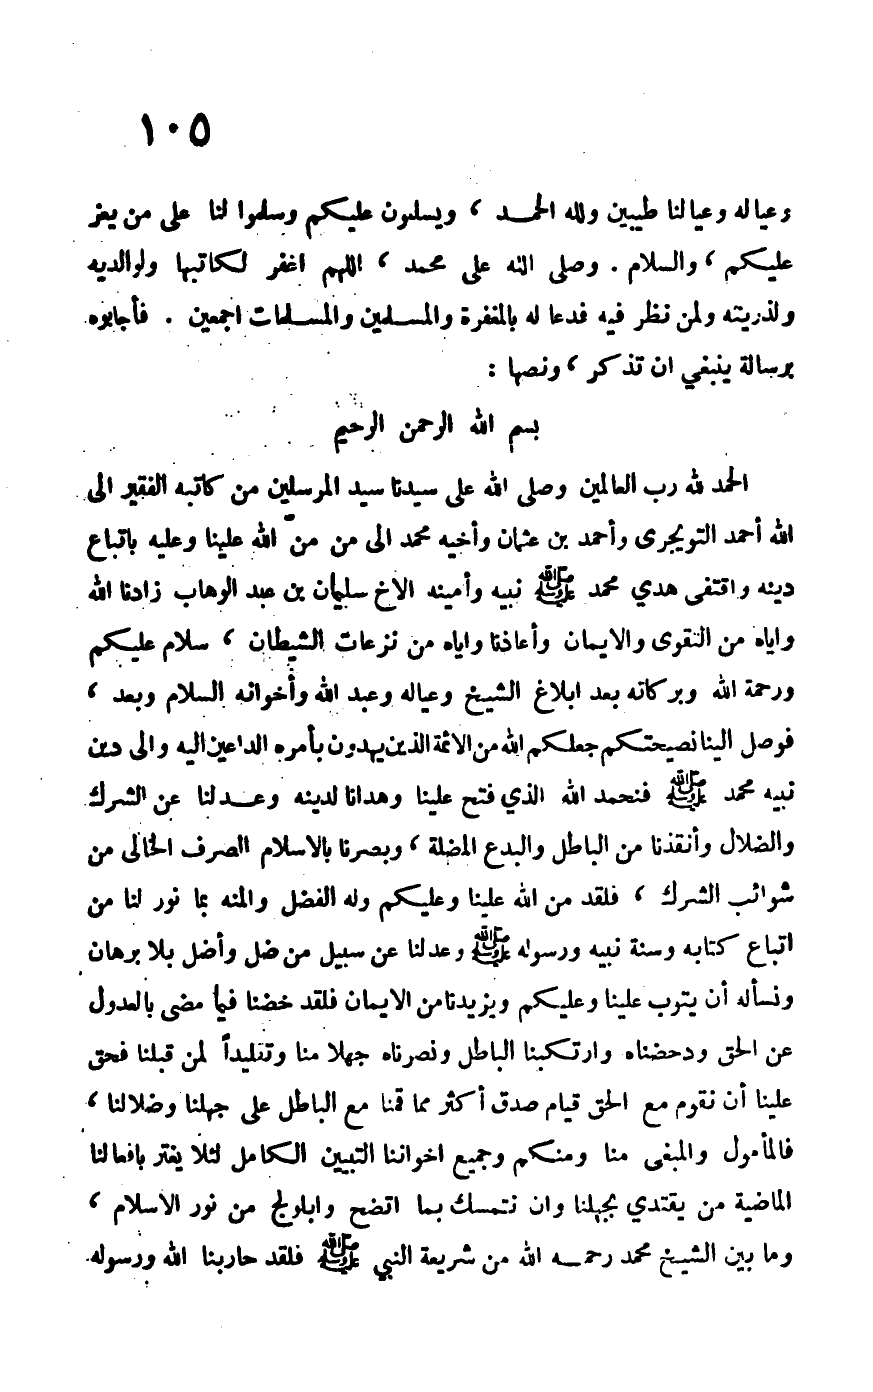 ١٠٥
وعياله وعيالنا طيبين ولله الحمـد ، ويسلمون عليكم وسلموا لنا على من يعز
عليكم ، والسلام . وصلى الله على محمد ، اللهم اغفر لكاتبها ولوالديه
ولذريته ولمن نظر فيه فدعا له بالمغفرة والمسلمين والمسلمات اجمعين . فأجابوه
برسالة ينبغي ان تذكر ، ونصها :
بسم الله الرحمن الرحيم
الحمد لله رب العالمين وصلى الله على سيدنا سيد المرسلين من كاتبه الفقير الى
الله أحمد التويجرى وأحمد بن عثمان وأخيه محمد الى من منّ الله علينا وعليه باتباع
دينه واقتفى هدي محمد ﷺ نبيه وأمينه الاخ سليمان بن عبد الوهاب زادنا الله
واياه من التقوى والايمان وأعاذنا واياه من نزعات الشيطان ، سلام عليكم
ورحمة الله وبركاته بعد ابلاغ الشيخ وعياله وعبد الله وأخوانه السلام وبعد ،
فوصل الينا نصيحتكم جعلكم الله من الائمة الذين يهدون بأمره الداعين اليه والى دين
نبيه محمد ﷺ فنحمد الله الذي فتح علينا وهدانا لدينه وعدلنا عن الشرك
والضلال وأنقذنا من الباطل والبدع المضلة ، وبصرنا بالاسلام الصرف الخالى من
شوائب الشرك ، فلقد من الله علينا وعليكم وله الفضل والمنه بما نور لنا من
اتباع كتابه وسنة نبيه ورسوله ﷺ وعدلنا عن سبيل من ضل وأضل بلا برهان
ونسأله أن يتوب علينا وعليكم ويزيدنا من الايمان فلقد خضنا فيما مضى بالعدول
عن الحق ودحضناه وارتكبنا الباطل ونصرناه جهلا منا وتقليداً لمن قبلنا فحق
علينا أن نقوم مع الحق قيام صدق أكثر مما قمنا مع الباطل على جهلنا وضلالنا ،
فالمأمول والمبغى منا ومنكم وجميع اخواننا التبيين الكامل لئلا يغتر بافعالنا
الماضية من يقتدي بجهلنا وان نتمسك بما اتضح وابلولج من نور الاسلام ،
وما بين الشيخ محمد رحمـه الله من شريعة النبي ﷺ فلقد حاربنا الله ورسوله